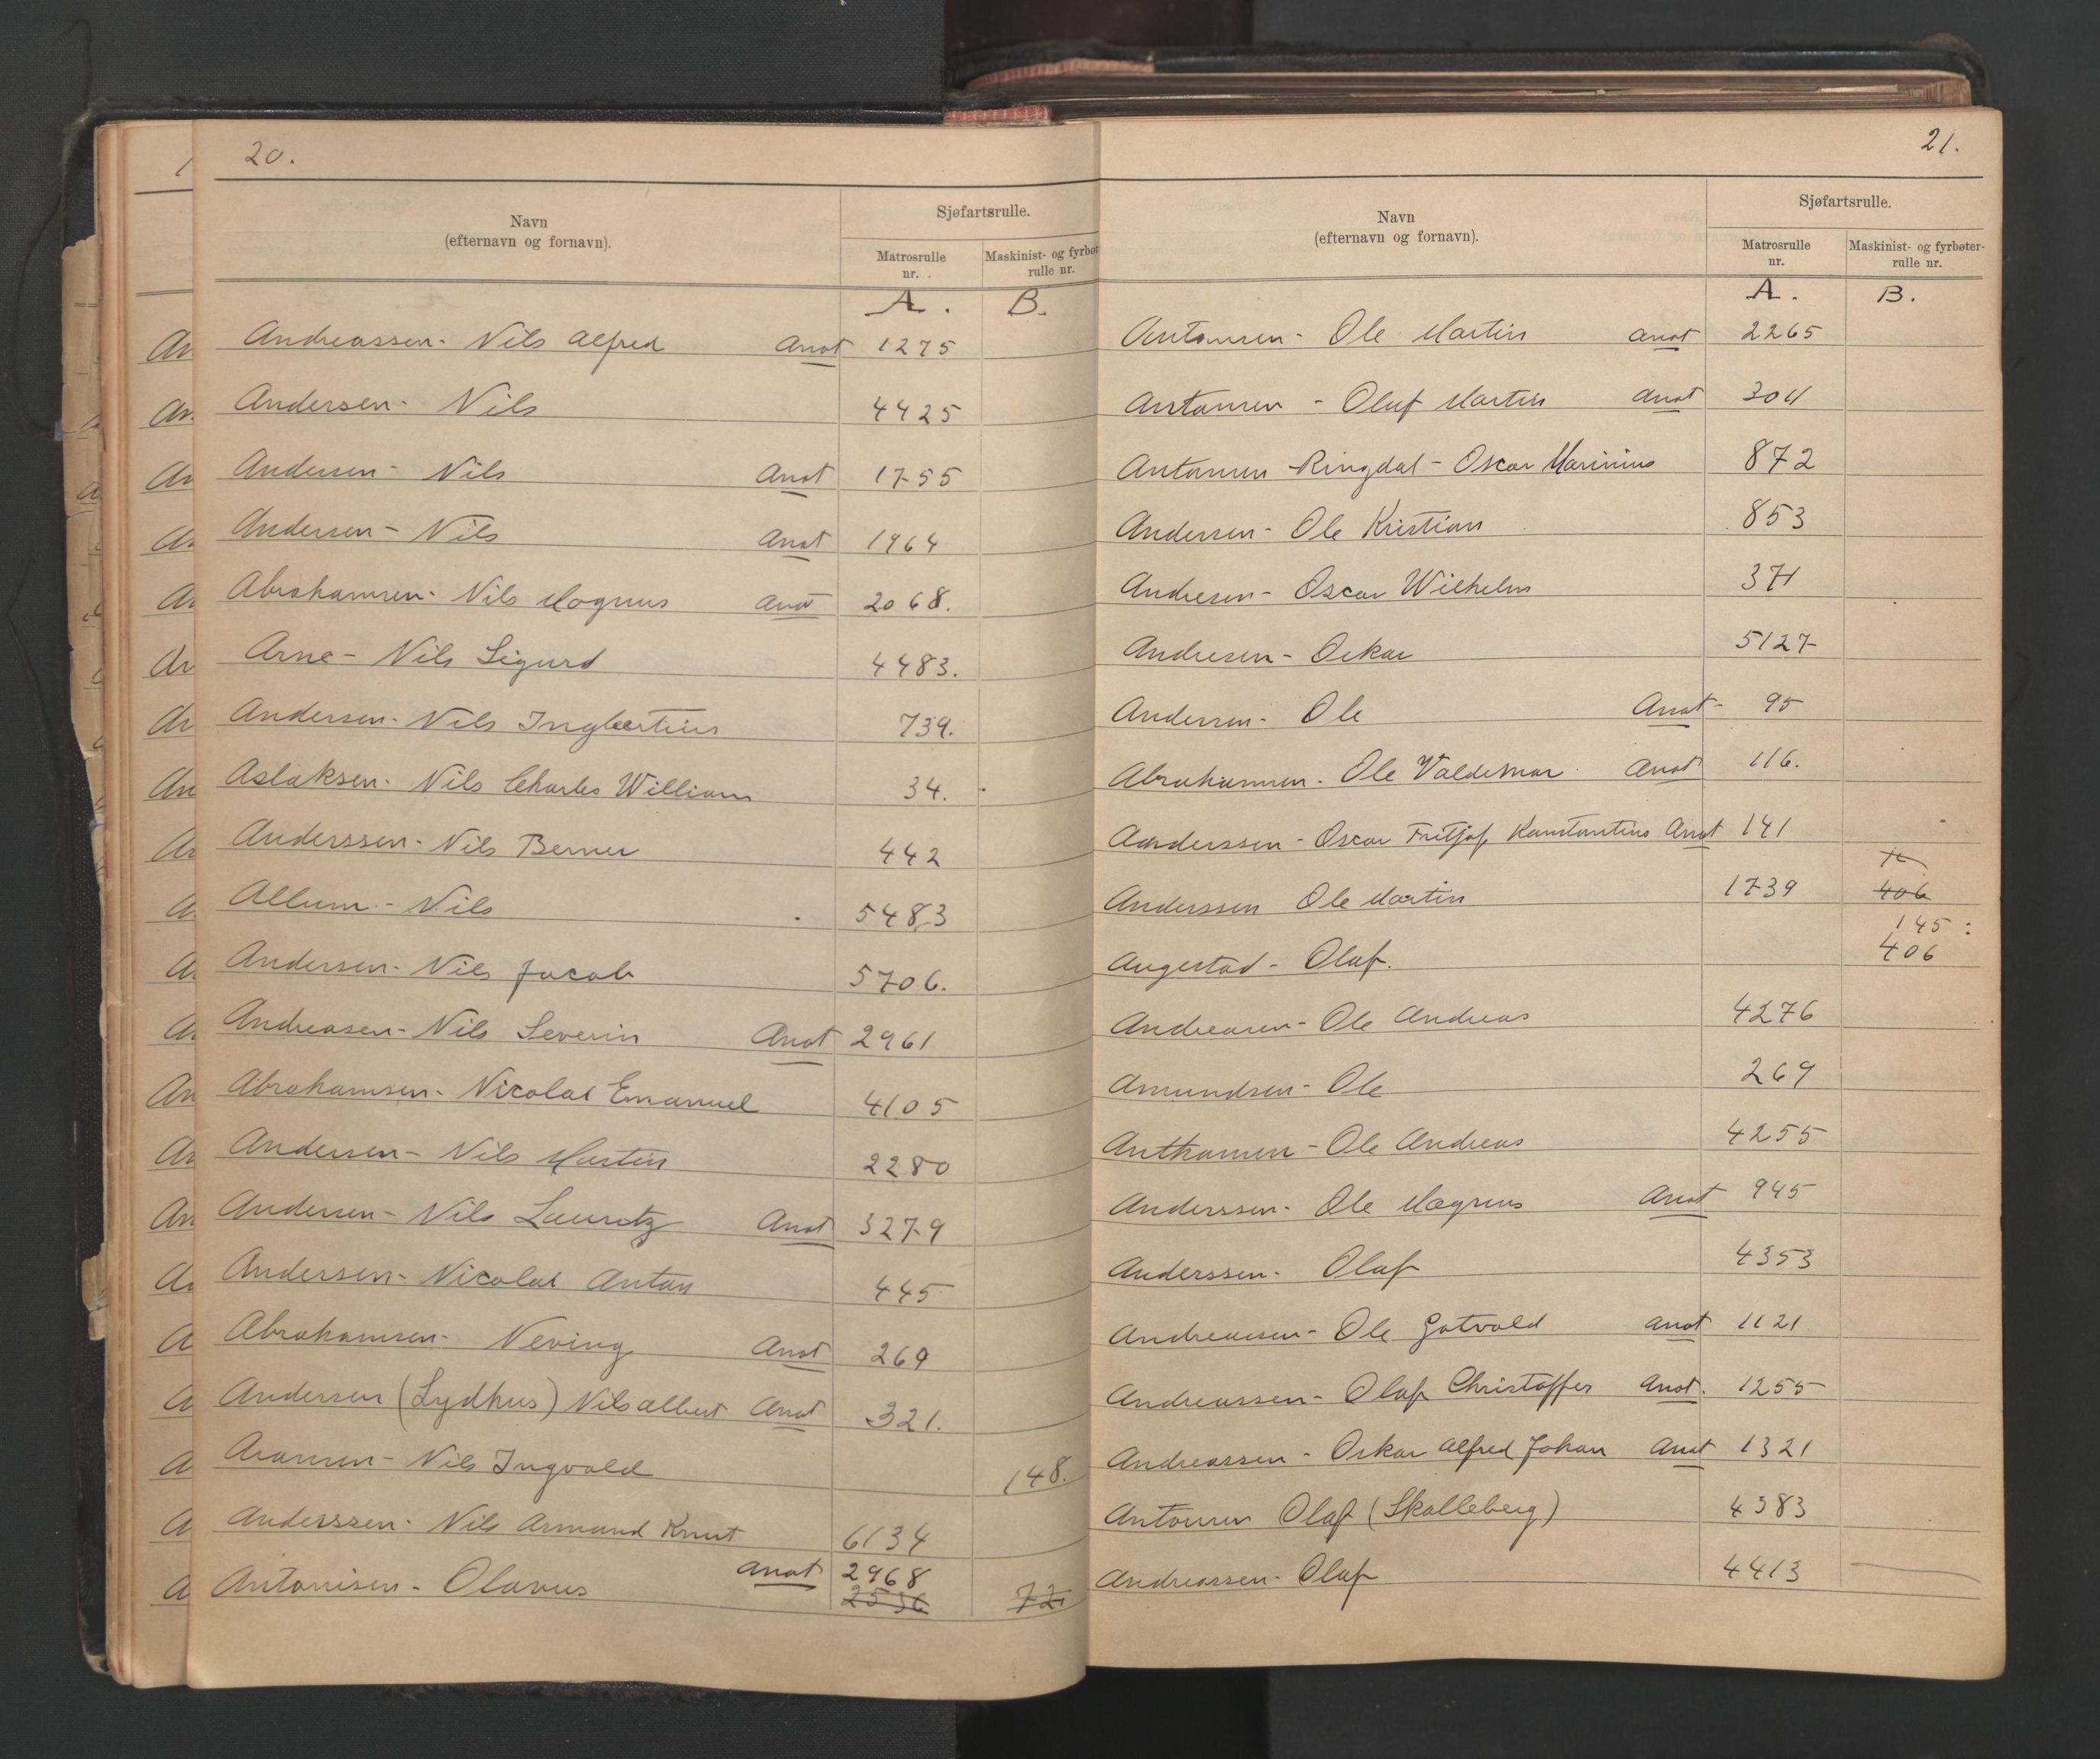 20.
Navn
(efternavn og fornavn).
Sjøfartsrulle.
Matrosrulle
nr.
Maskinist- og fyrbøt
rulle nr.
A. B.
Andreassen- Nils Alfred Anot 1275
Andersen- Nils 4425
Andersen- Nils Anot 1755
Andersen- Nils Anot 1964
Abrahamsen- Nils Magnus Anot 2068.
Arne- Nils Sigurd 4483.
Andersen- Nils Ingbertius 739.
Aslaksen- Nils Charles William 34.
Anderssen- Nils Berner 442
Allum- Nils 5483
Andersen- Nils Jacob 5706.
Andreasen- Nils Severin Anot 2961
Abrahamsen- Nicolai Emanuel 4105
Andersen- Nils Martin 2280
Andersen- Nils Lauritz Anot 3279
Anderssen- Nicolai Anton 445
Abrahamsen- Neving Anot 269
Andersen (Lydhus) Nils Albert Anot 321.
Aronsen- Nils Ingvald 148.
Anderssen- Nils Armand Knut 6134
Antonisen- Olavus Anot 2968
2536 72
21.
Navn
(efternavn og fornavn).
Sjøfartsrulle.
Matrosrulle
nr.
Maskinist- og fyrbøter-
rulle nr.
A. B.
Antonsen- Ole Martin Anot 2265
Antonsen - Oluf Martin Anot 304
Antonsen Ringdal- Oscar Marinius 872
Andersen- Ole Kristian 853
Andresen- Oscar Wilhelm 371
Andresen- Oskar 5127
Andersen- Ole Anot- 95
Abrahamsen- Ole Valdemar Anot 116.
Aanderssen- Oscar Fritjof Konstantius Anot 141
Anderssen Ole Martin 1739 406
145
Augestad- Olaf. 406
Andreasen- Ole Andreas 4276
Amundsen- Ole 269
Anthonsen- Ole Andreas 4255
Anderssen- Ole Magnus Anot 945
Anderssen- Oluf 4353
Andreassen- Ole Gotvald Anot 1121
Andreassen- Olaf Christoffer Anot. 1255
Andreassen- Oskar Alfred Johan Anot 1321
Antonsen Olaf (Skalleberg) 4383
Andreassen- Oluf 4413